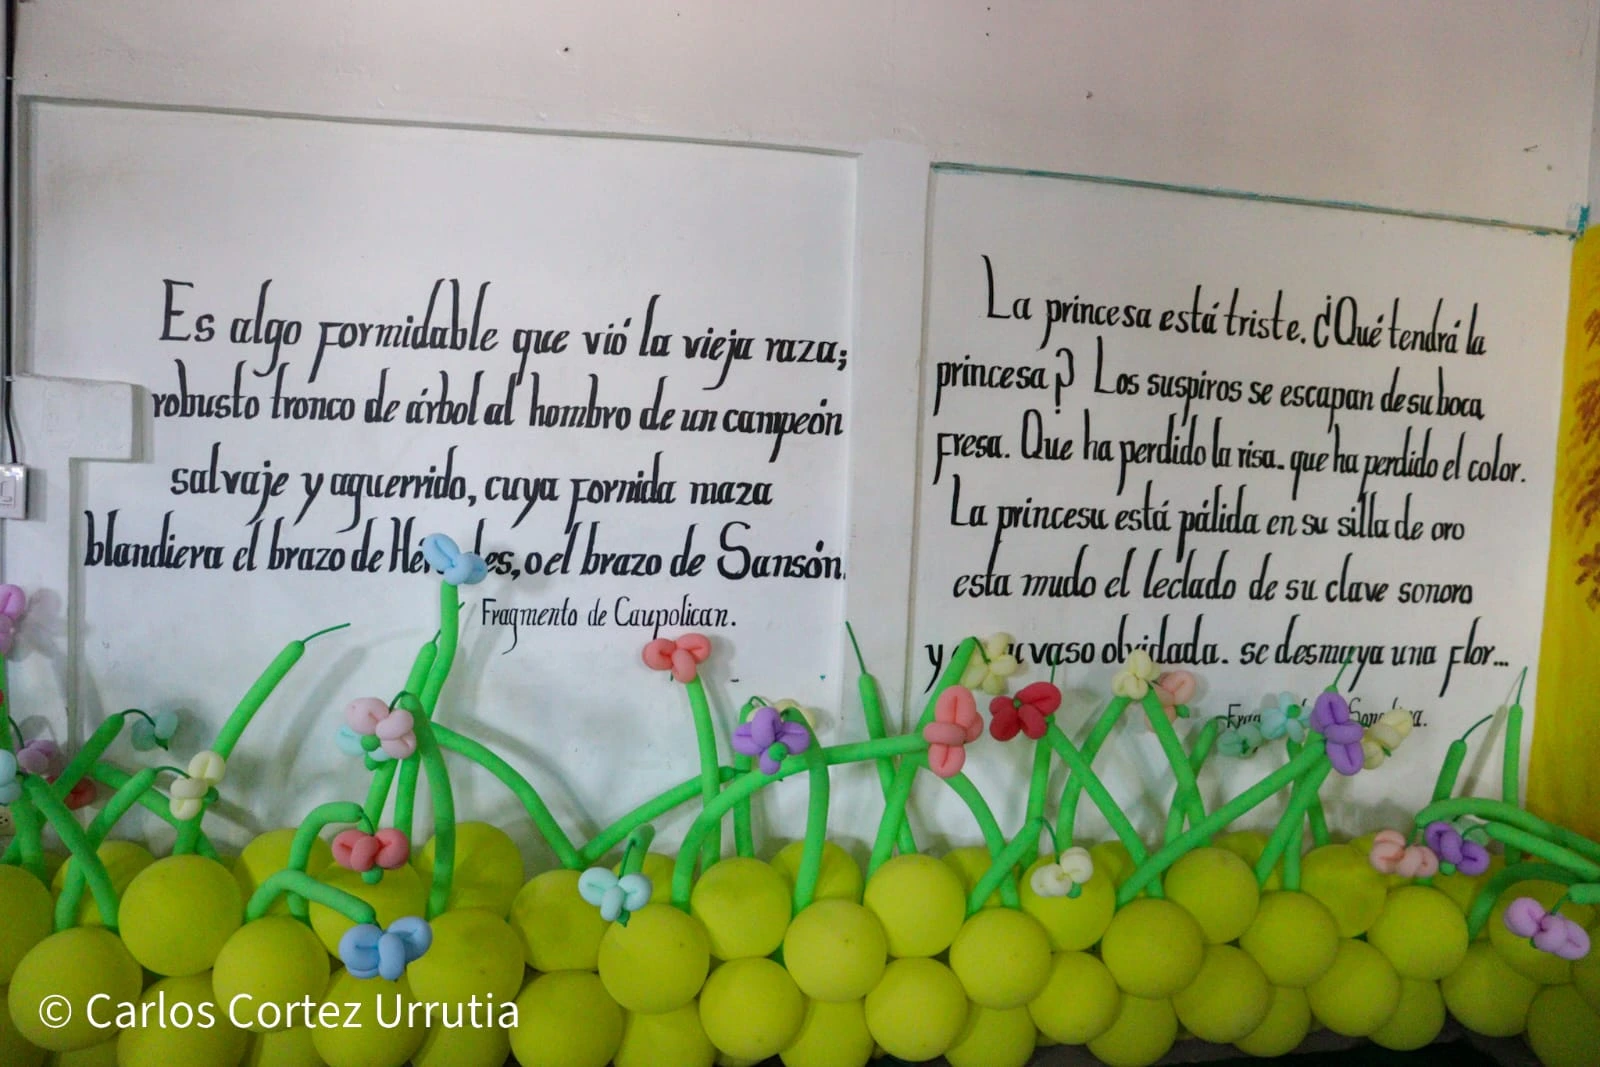 Es algo formidable que vió la vieja raza;
robusto tronco de árbol al hombro de un campeón
salvaje y aguerrido, cuya fornida maza
blandiera el brazo de o el brazo de Sansón.
Fragmento de Caupolican.
La princesa está triste. ¿Qué tendrá la
princesa? Los suspiros se escapan de su boca
fresa. Que ha perdido la risa. que ha perdido el color.
La princesa está pálida en su silla de oro
esta mudo el teclado de su clave sonoro
y vaso olvidada. se desmaya una flor...
© Carlos Cortez Urrutia